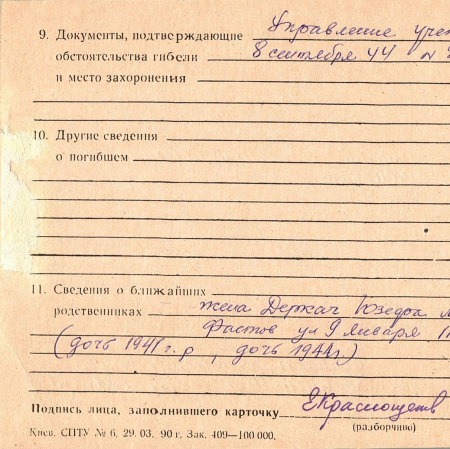 9. Документы, подтверждающие Управление
обстоятельства гибели 8 сентября 44 N
и место захоронения
10. Другие сведения
о погибшем
11. Сведения о ближайших
родственниках жена Держач
Фастов ул 9 Января
(дочь 1941 г. р , дочь 1944г)
Подпись лица, заполнившего карточку
(разборчиво)
Киев. СПТУ № 6. 29. 03. 90 г. Зак. 409—100 000.